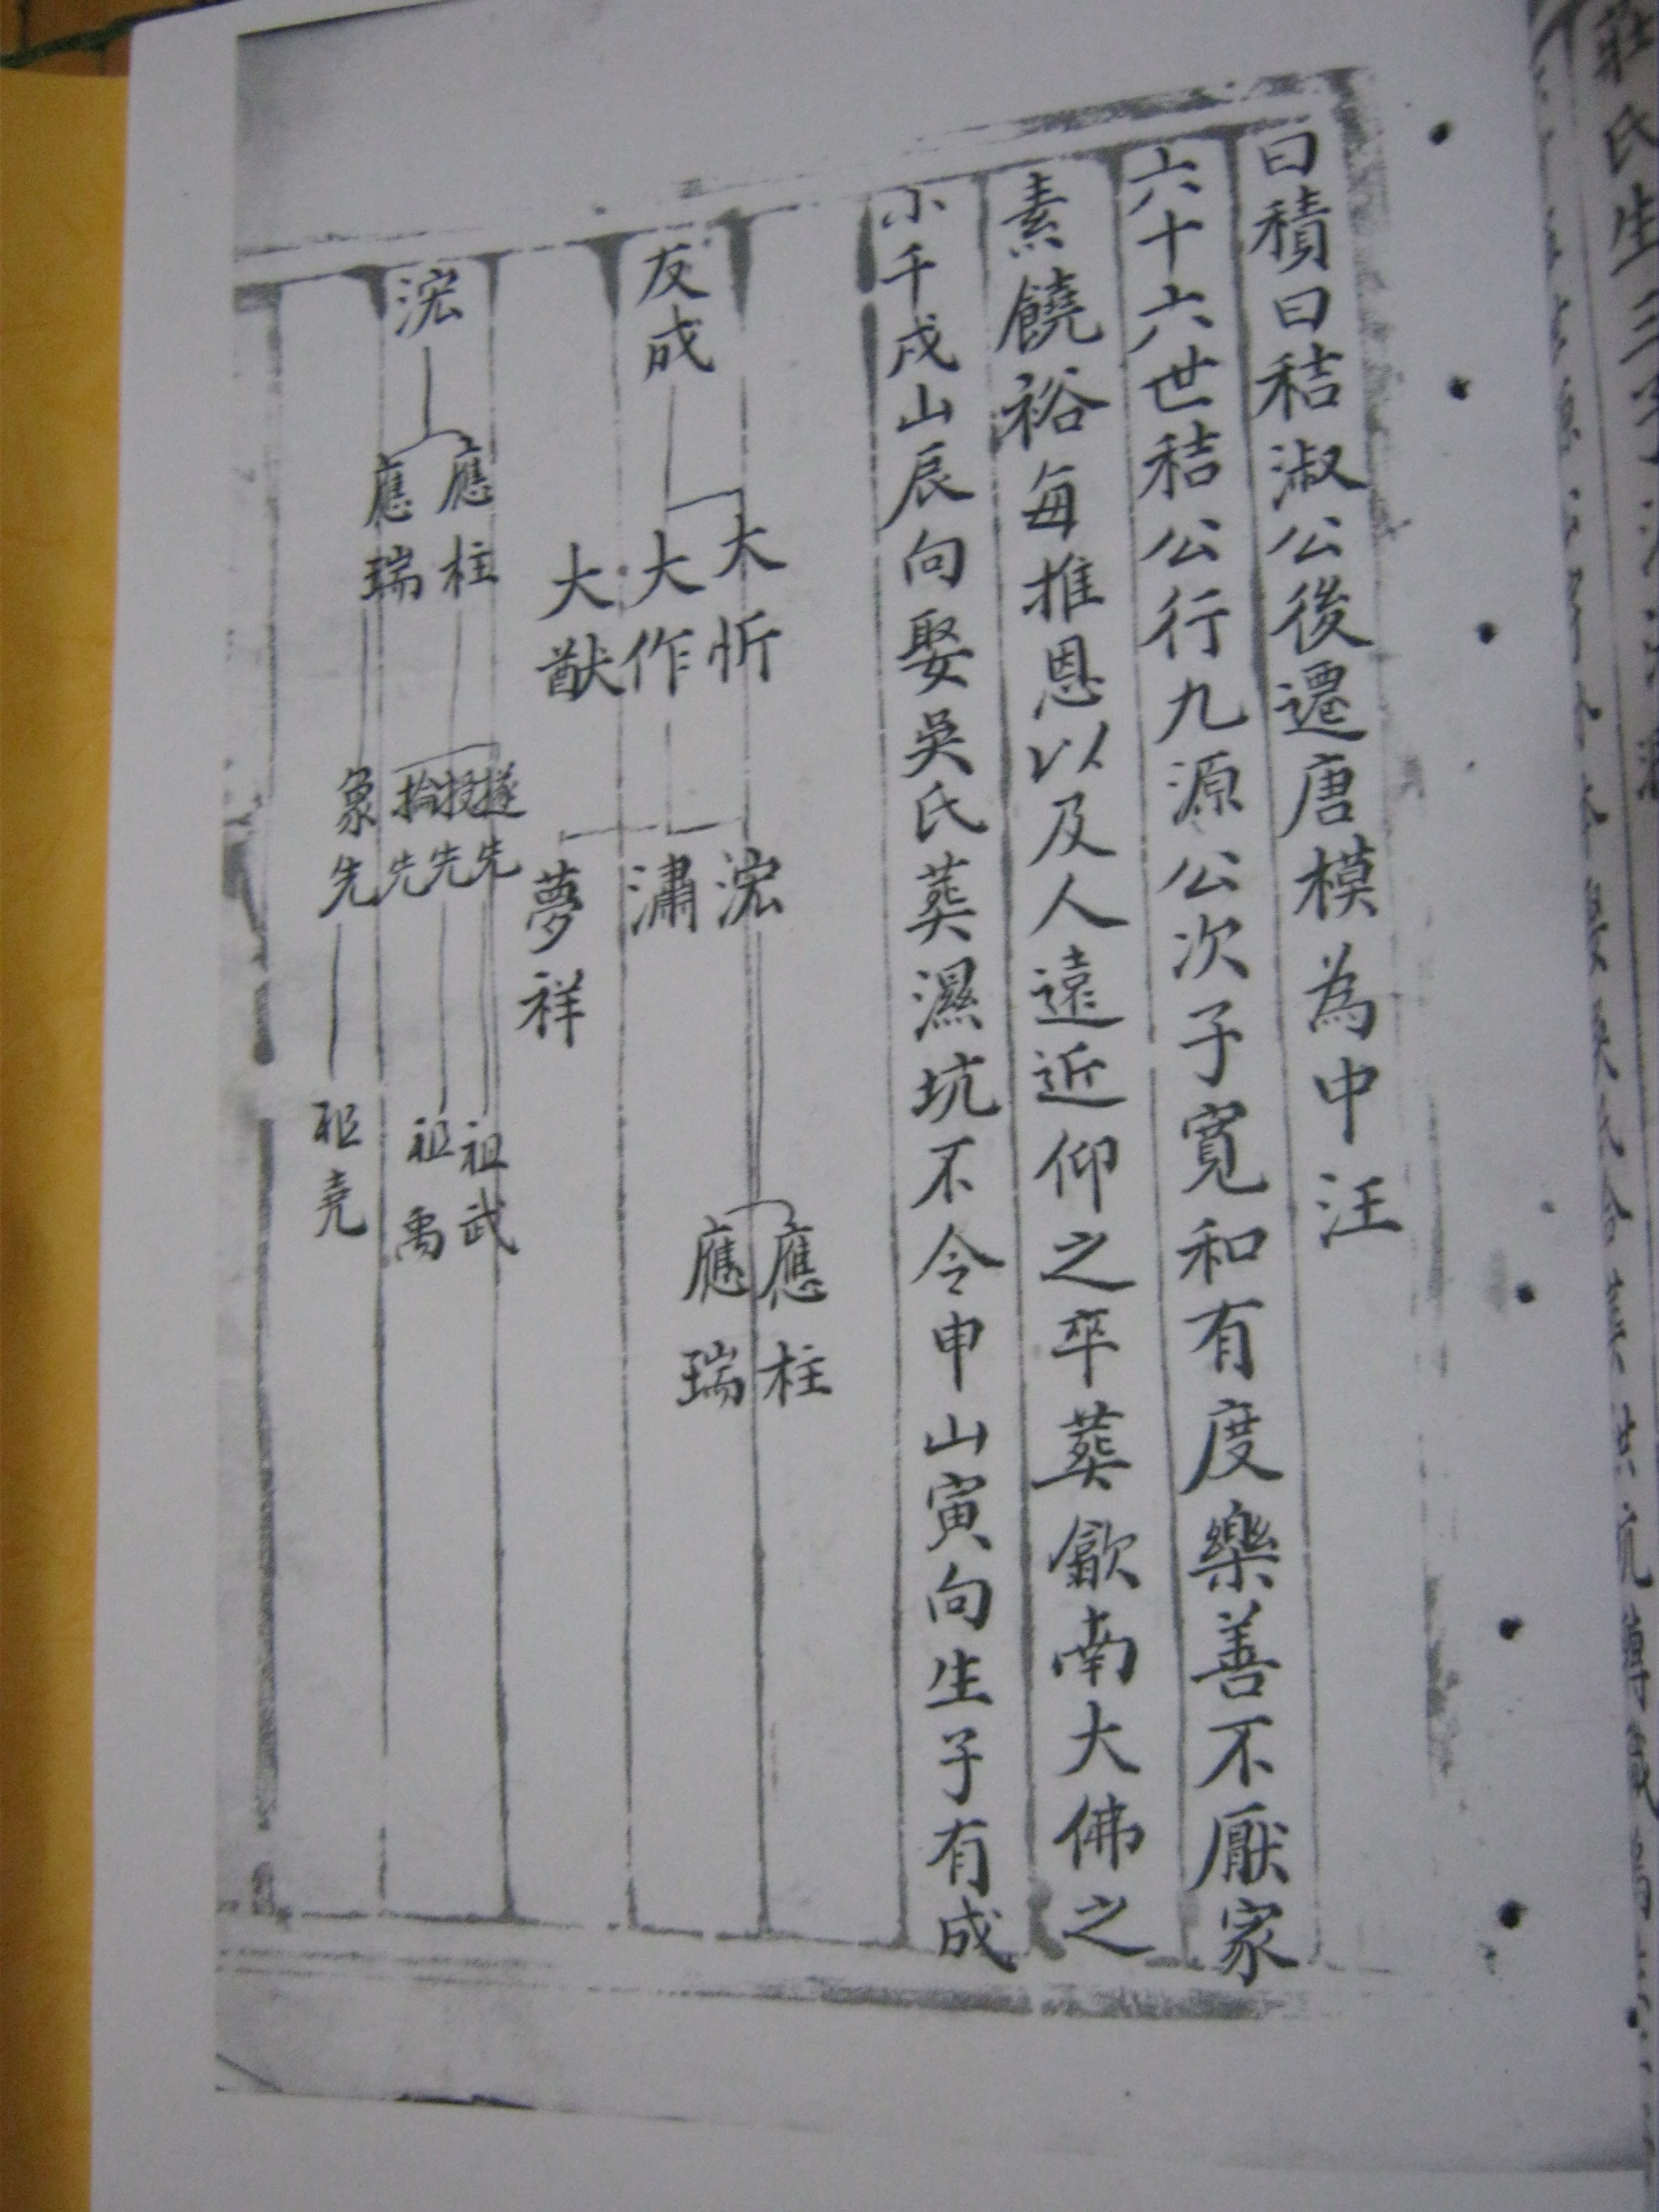 曰積曰秸淑公後遷唐模為中汪
六十六世秸公行九源公次子寬和有度樂善不厭家
素饒裕每推恩以及人遠近仰之卒葬歙南大佛之
小千戌山辰向娶吳氏葬濕坑不令申山寅向生子有成
友成
大忻
大作
大猷
浤
潚
夢祥
應柱
應瑞
浤
應柱
應瑞
遂先
授先
掄先
象先
祖武
祖禹
祖堯